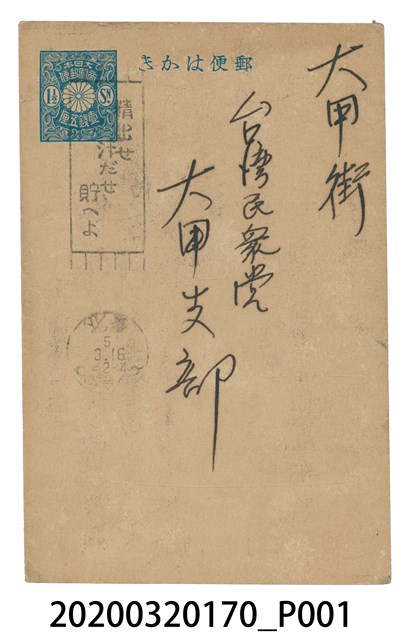 郵便はかき
大日本帝國郵便
1½ Sn.
壹錢五厘
精出せ
汗だせ
貯へよ
5
3.16
大甲街
台湾民衆党
大甲支部
20200320170_P001